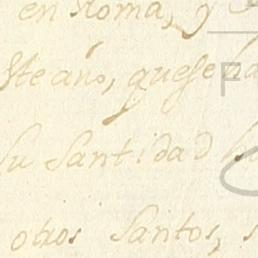 en Roma, y
este año, que se ha
su Santidad
otros Santos, s